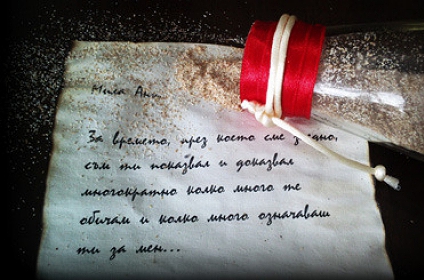 Мила Ани
За времето, през което сме заедно,
съм ти показвал и доказвал
многократно колко много те
обичам и колко много означаваш
ти за мен...